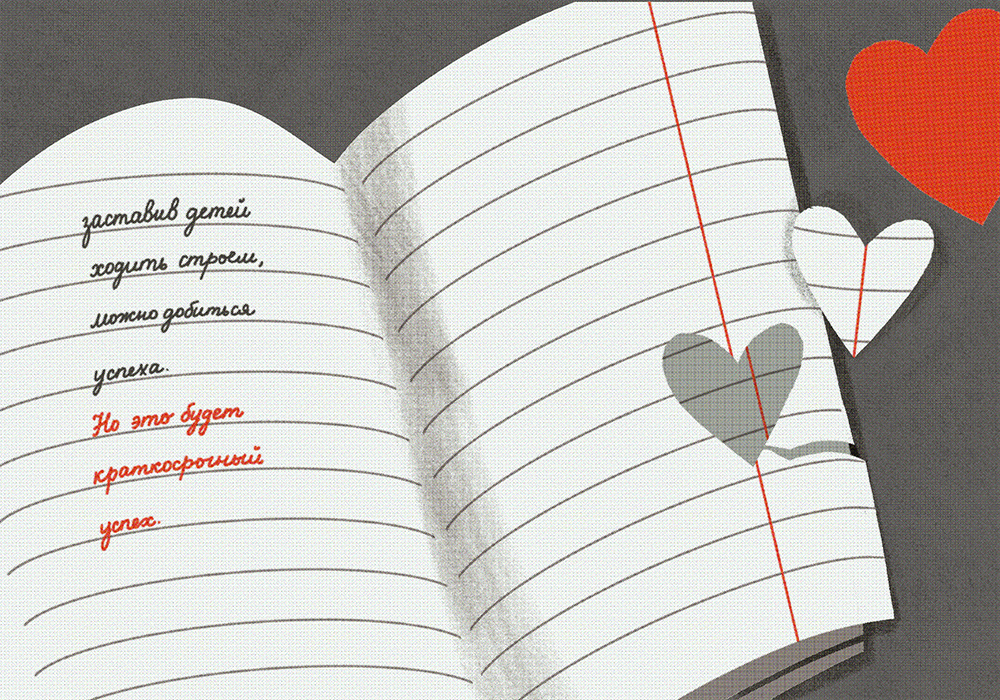 заставив детей
ходить строем,
можно добиться
успеха.
Но это будет
краткосрочный
успех.